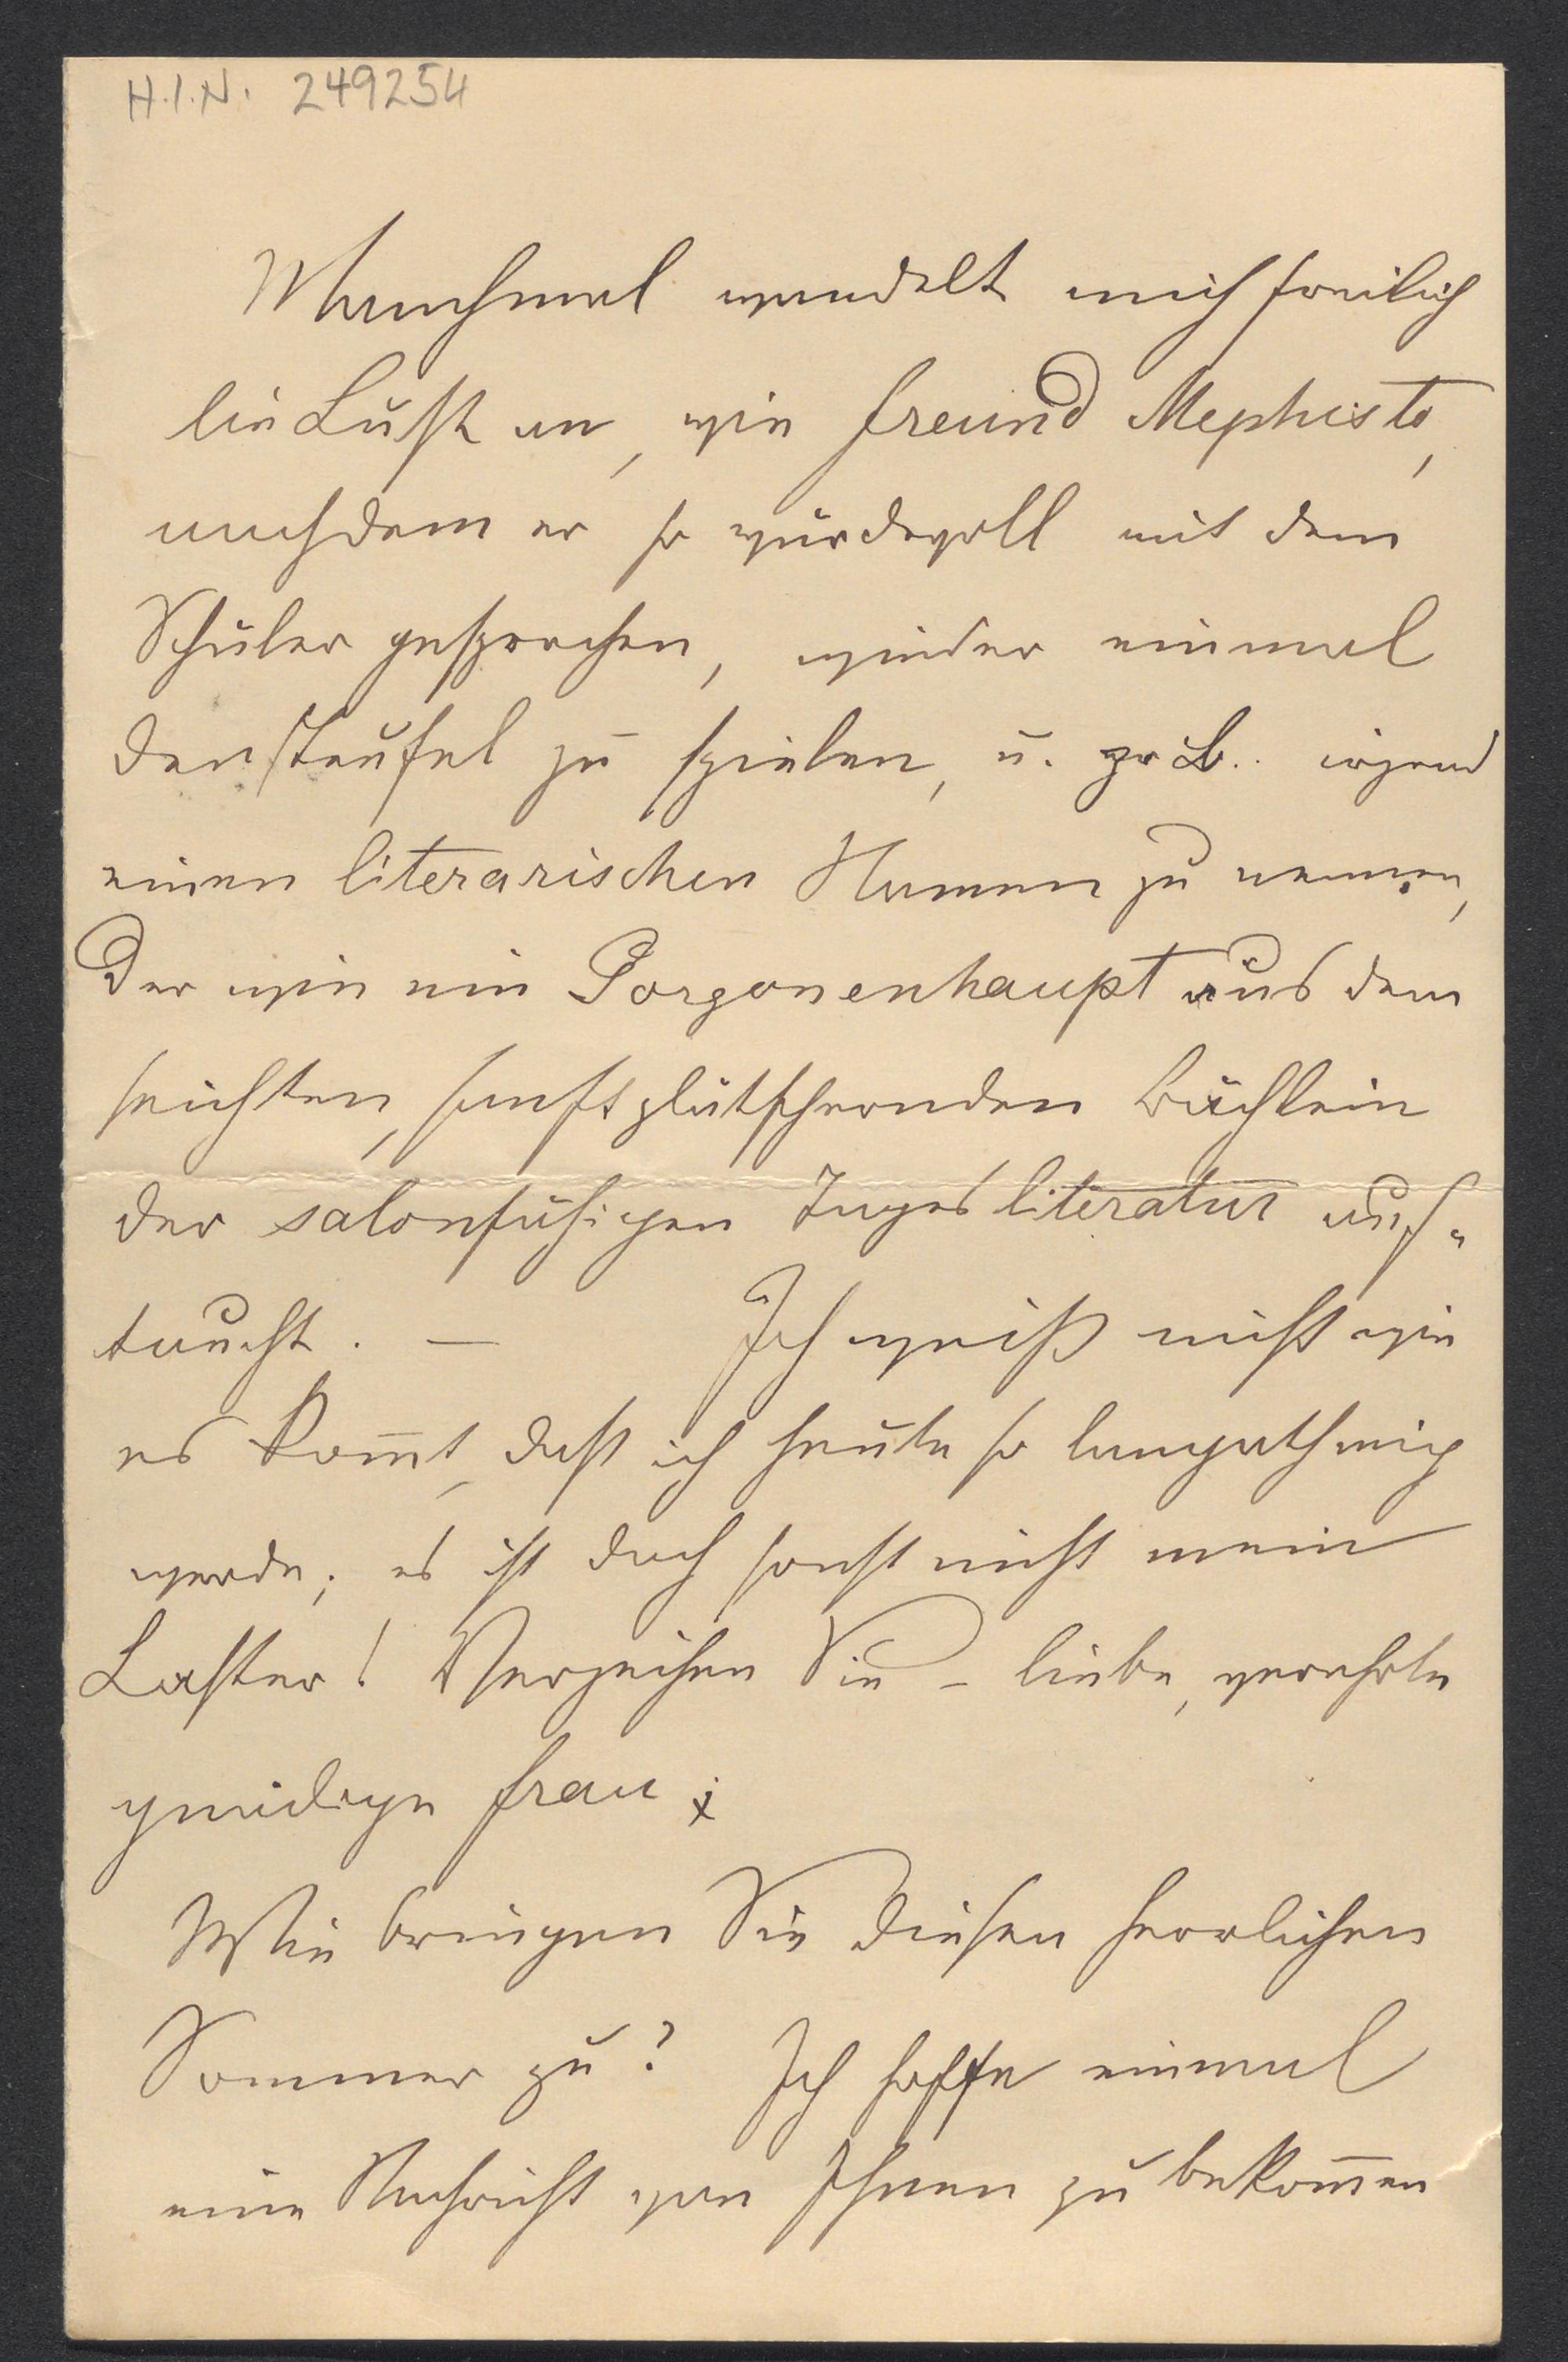 H.I.N. 249254
Manchmal wandelt mich freilich
die Lust an, wie Freund Mephisto,
nachdem er so würdevoll mit dem
Schüler gesprochen, wieder einmal
den Teufel zu spielen, u. z. B. irgend
einen literarischen Namen zu nennen,
der wie ein Gorgonenhaupt aus dem
seichten, sanft plätschernden Bächlein
der salonfähigen Tagesliteratur auf-
taucht. — Ich weiß nicht wie
es kom̅t, daß ich heute so langathmig
werde; es ist doch sonst nicht mein
Laster! Verzeihen Sie – liebe, verehrte
gnädige Frau;
Wie bringen Sie diesen herrlichen
Sommer zu? Ich hoffe einmal
eine Nachricht von Ihnen zu bekom̅en